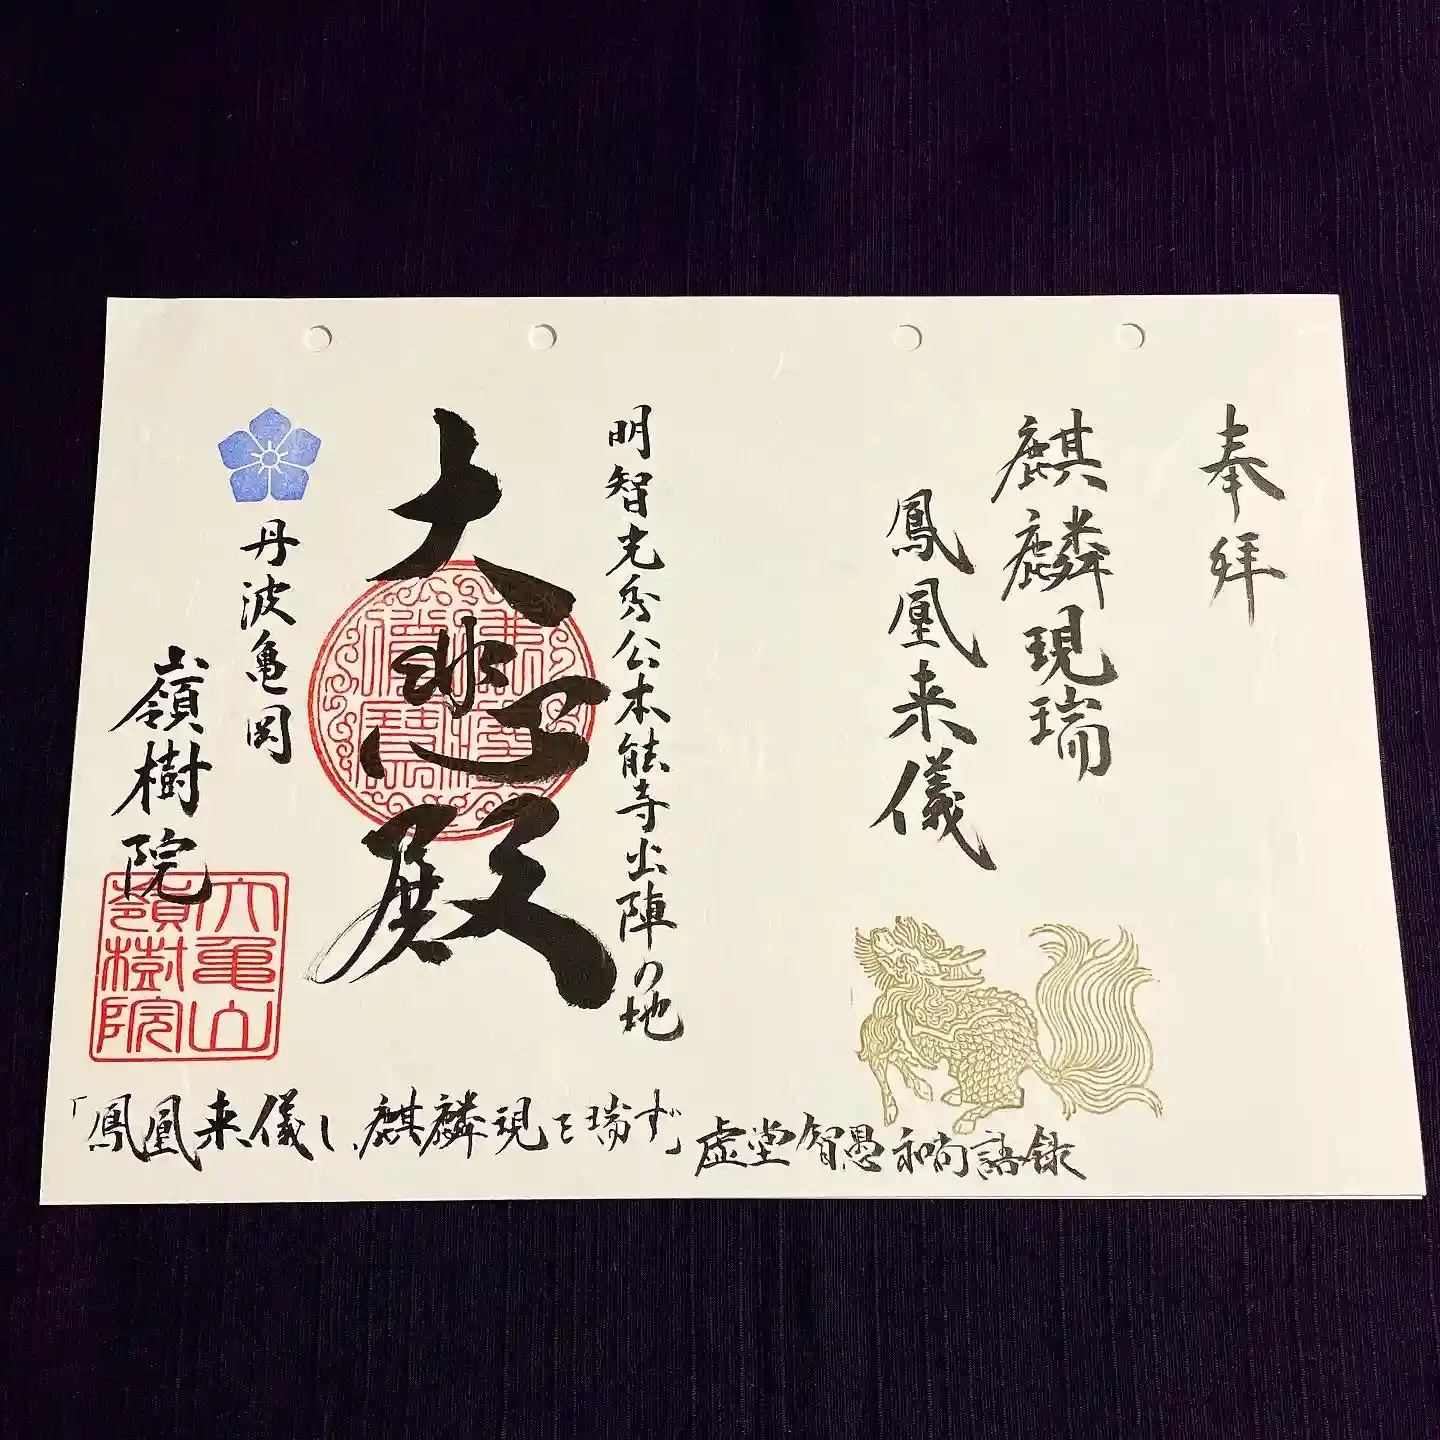 奉拝
麒麟現瑞
鳳凰来儀
明智光秀公本能寺出陣の地
大悲殿
丹波亀岡
嶺樹院
大亀山
嶺樹院
「鳳凰来儀し、麒麟現を瑞ず」虚堂智愚和尚語録